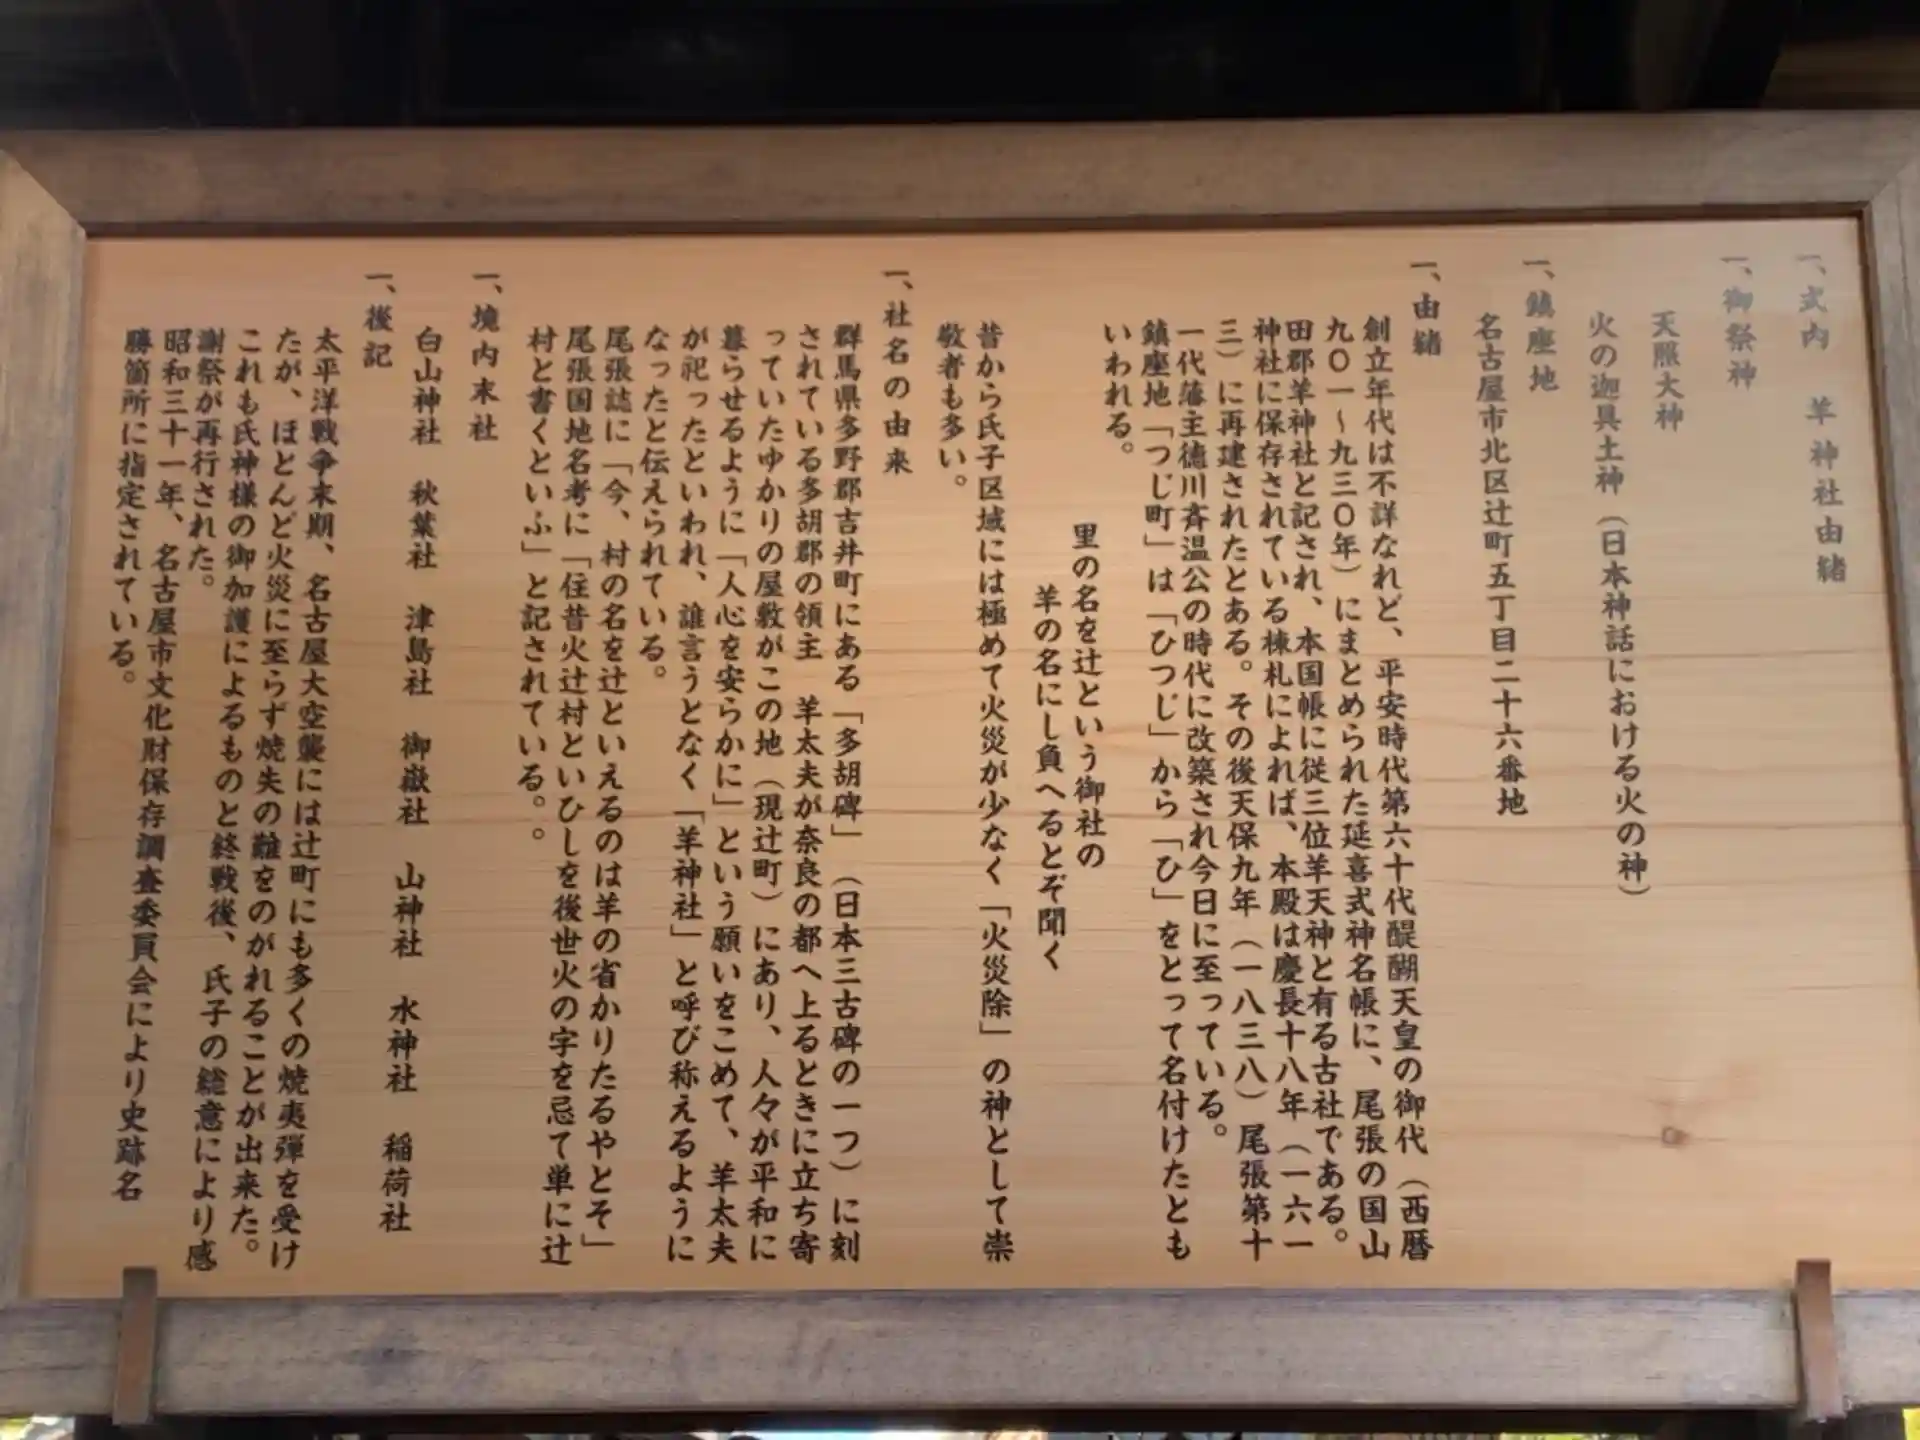 一、式内 羊神社由緒
一、御祭神
天照大神
火の迦具土神(日本神話における火の神)
一、鎮座地
名古屋市北区辻町五丁目二十六番地
一、由緒
創立年代は不詳なれど、平安時代第六十代醍醐天皇の御代(西暦
九〇一~九三〇年)にまとめられた延喜式神名帳に、尾張の国山
田郡羊神社と記され、本国帳に従三位羊天神と有る古社である。
神社に保存されている棟札によれば、本殿は慶長十八年(一六一
三)に再建されたとある。その後天保九年(一八三八)尾張第十
一代藩主徳川斉温公の時代に改築され今日に至っている。
鎮座地「つじ町」は「ひつじ」から「ひ」をとって名付けたとも
いわれる。
里の名を辻という御社の
羊の名にし負へるとぞ聞く
昔から氏子区域には極めて火災が少なく「火災除」の神として崇
敬者も多い。
一、社名の由来
群馬県多野郡吉井町にある「多胡碑」(日本三古碑の一つ)に刻
されている多胡郡の領主 羊太夫が奈良の都へ上るときに立ち寄
っていたゆかりの屋敷がこの地(現辻町)にあり、人々が平和に
暮らせるように「人心を安らかに」という願いをこめて、羊太夫
が祀ったといわれ、誰言うとなく「羊神社」と呼び称えるように
なったと伝えられている。
尾張誌に「今、村の名を辻といえるのは羊の省かりたるやとそ」
尾張国地名考に「住昔火辻村といひしを後世火の字を忌て単に辻
村と書くといふ」と記されている。。
一、境内末社
白山神社 秋葉社 津島社 御嶽社 山神社 水神社 稲荷社
一、後記
太平洋戦争末期、名古屋大空襲には辻町にも多くの焼夷弾を受け
たが、ほとんど火災に至らず焼失の難をのがれることが出来た。
これも氏神様の御加護によるものと終戦後、氏子の総意により感
謝祭が再行された。
昭和三十一年、名古屋市文化財保存調査委員会により史跡名
勝箇所に指定されている。